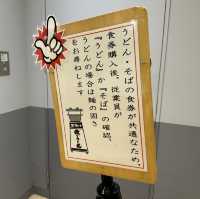 うどん・そばの食券が共通なため、
食券購入後、従業員が
『うどん』か『そば』の確認、
うどんの場合は麺の固さ
をお尋ねします